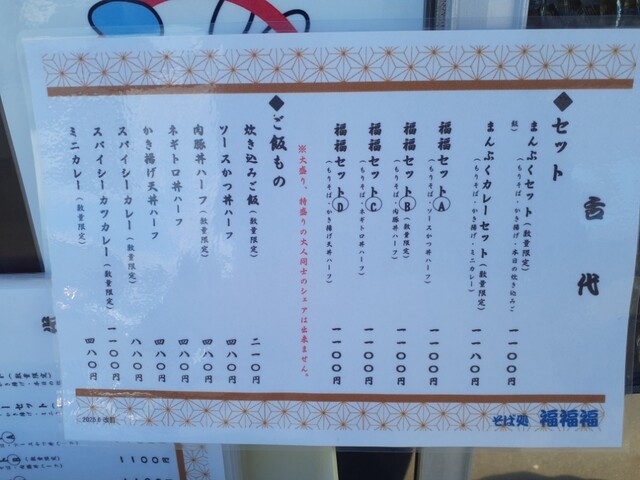 舌代
◆セット
まんぷくセット(数量限定) 一一〇〇円
(もりそば・かき揚げ・本日の炊き込みご飯)
まんぷくカレーセット(数量限定) 一一八〇円
(もりそば・かき揚げ・ミニカレー)
福福セットⒶ 一一〇〇円
(もりそば・ソースかつ丼ハーフ)
福福セットⒷ(数量限定) 一一〇〇円
(もりそば・肉豚丼ハーフ)
福福セットⒸ 一一〇〇円
(もりそば・ネギトロ丼ハーフ)
福福セットⒹ 一一〇〇円
(もりそば・かき揚げ天丼ハーフ)
※大盛り、特盛りの大人同士のシェアは出来ません。
◆ご飯もの
炊き込みご飯(数量限定) 二一〇円
ソースかつ丼ハーフ 四八〇円
肉豚丼ハーフ(数量限定) 四八〇円
ネギトロ丼ハーフ 四八〇円
かき揚げ天丼ハーフ 四八〇円
スパイシーカレー(数量限定) 八八〇円
スパイシーカツカレー(数量限定) 一一〇〇円
ミニカレー(数量限定) 四八〇円
そば処 福福福
1100円